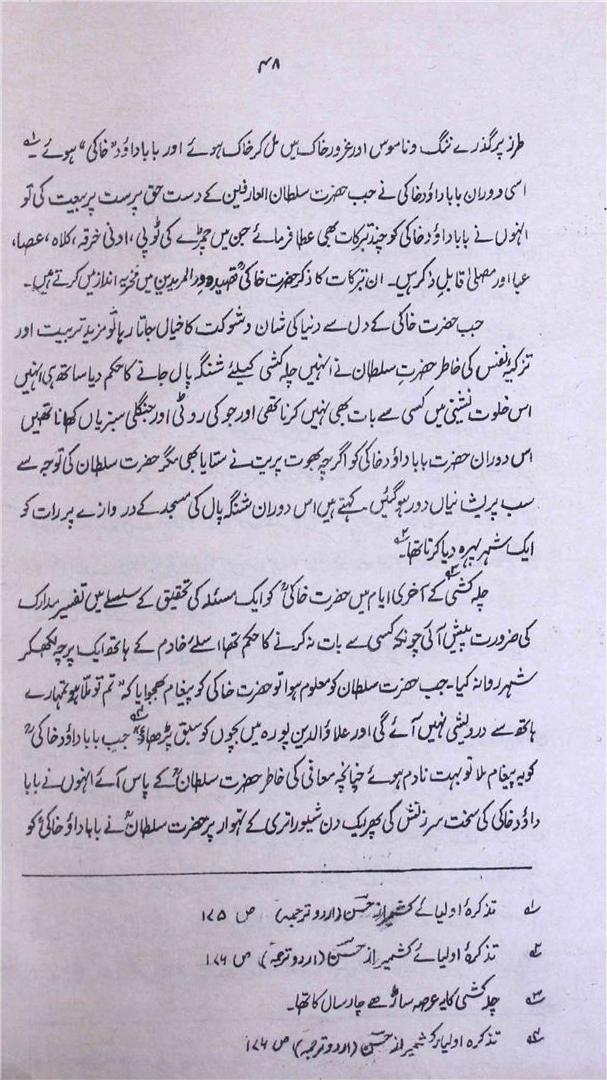 ۴۸
طرز پر گذرے ننگ و ناموس اور غرور خاک میں مل کر خاک ہوئے اور بابا داؤد "خاکی" ہوئے۔ ۱؎
اسی دوران بابا داؤد خاکی نے جب حضرت سلطان العارفین کے دست حق پرست پر بیعت کی تو
انہوں نے بابا داؤد خاکی کو چند تبرکات بھی عطا فرمائے جن میں چمڑے کی ٹوپی، ادنیٰ خرقہ، کلاہ، عصا،
عبا اور مصلیٰ قابلِ ذکر ہیں۔ ان تبرکات کا ذکر حضرت خاکیؒ قصیدہ ورد المریدین میں فخریہ انداز میں کرتے ہیں۔
جب حضرت خاکی کے دل سے دنیا کی شان و شوکت کا خیال جاتا رہا تو مزید تربیت اور
تزکیہ نفس کی خاطر حضرت سلطان نے انہیں چلہ کشی کیلئے شنگہ پال جانے کا حکم دیا ساتھ ہی انہیں
اس خلوت نشینی میں کسی سے بات بھی نہیں کرنا تھی اور جو کی روٹی اور جنگلی سبزیاں کھانا تھیں
اس دوران حضرت بابا داؤد خاکی کو اگرچہ بھوت پریت نے ستایا بھی مگر حضرت سلطان کی توجہ سے
سب پریشانیاں دور ہوگئیں۔ کہتے ہیں اس دوران شنگہ پال کی مسجد کے دروازے پر رات کو
ایک شہر پہرہ دیا کرتا تھا۔ ۲؎
چلہ کشی ۳؎ کے آخری ایام میں حضرت خاکیؒ کو ایک مسئلہ کی تحقیق کے سلسلے میں تفسیر مدارک
کی ضرورت پیش آئی چونکہ کسی سے بات نہ کرنے کا حکم تھا اسلئے خادم کے ہاتھ ایک پرچہ لکھ کر
شہر روانہ کیا۔ جب حضرت سلطان کو معلوم ہوا تو حضرت خاکی کو پیغام بھجوایا کہ "تم تو ملّا ہو تمہارے
ہاتھ سے درویشی نہیں آئے گی اور علاؤالدین پورہ میں بچوں کو سبق پڑھاؤ" ۴؎ جب بابا داؤد خاکیؒ
کو یہ پیغام ملا تو بہت نادم ہوئے چنانچہ معافی کی خاطر حضرت سلطانؒ کے پاس آئے انہوں نے بابا
داؤد خاکی کی سخت سرزنش کی پھر ایک دن شیوراتری کے تہوار پر حضرت سلطانؒ نے بابا داؤد خاکیؒ کو
۱؎ تذکرہ اولیائے کشمیر از حسن (اردو ترجمہ) ص ۱۷۵
۲؎ تذکرہ اولیائے کشمیر از حسن (اردو ترجمہ) ص ۱۷۶
۳؎ چلہ کشی کا یہ عرصہ ساڑھے چار سال کا تھا۔
۴؎ تذکرہ اولیائے کشمیر از حسن (اردو ترجمہ) ص ۱۷۶